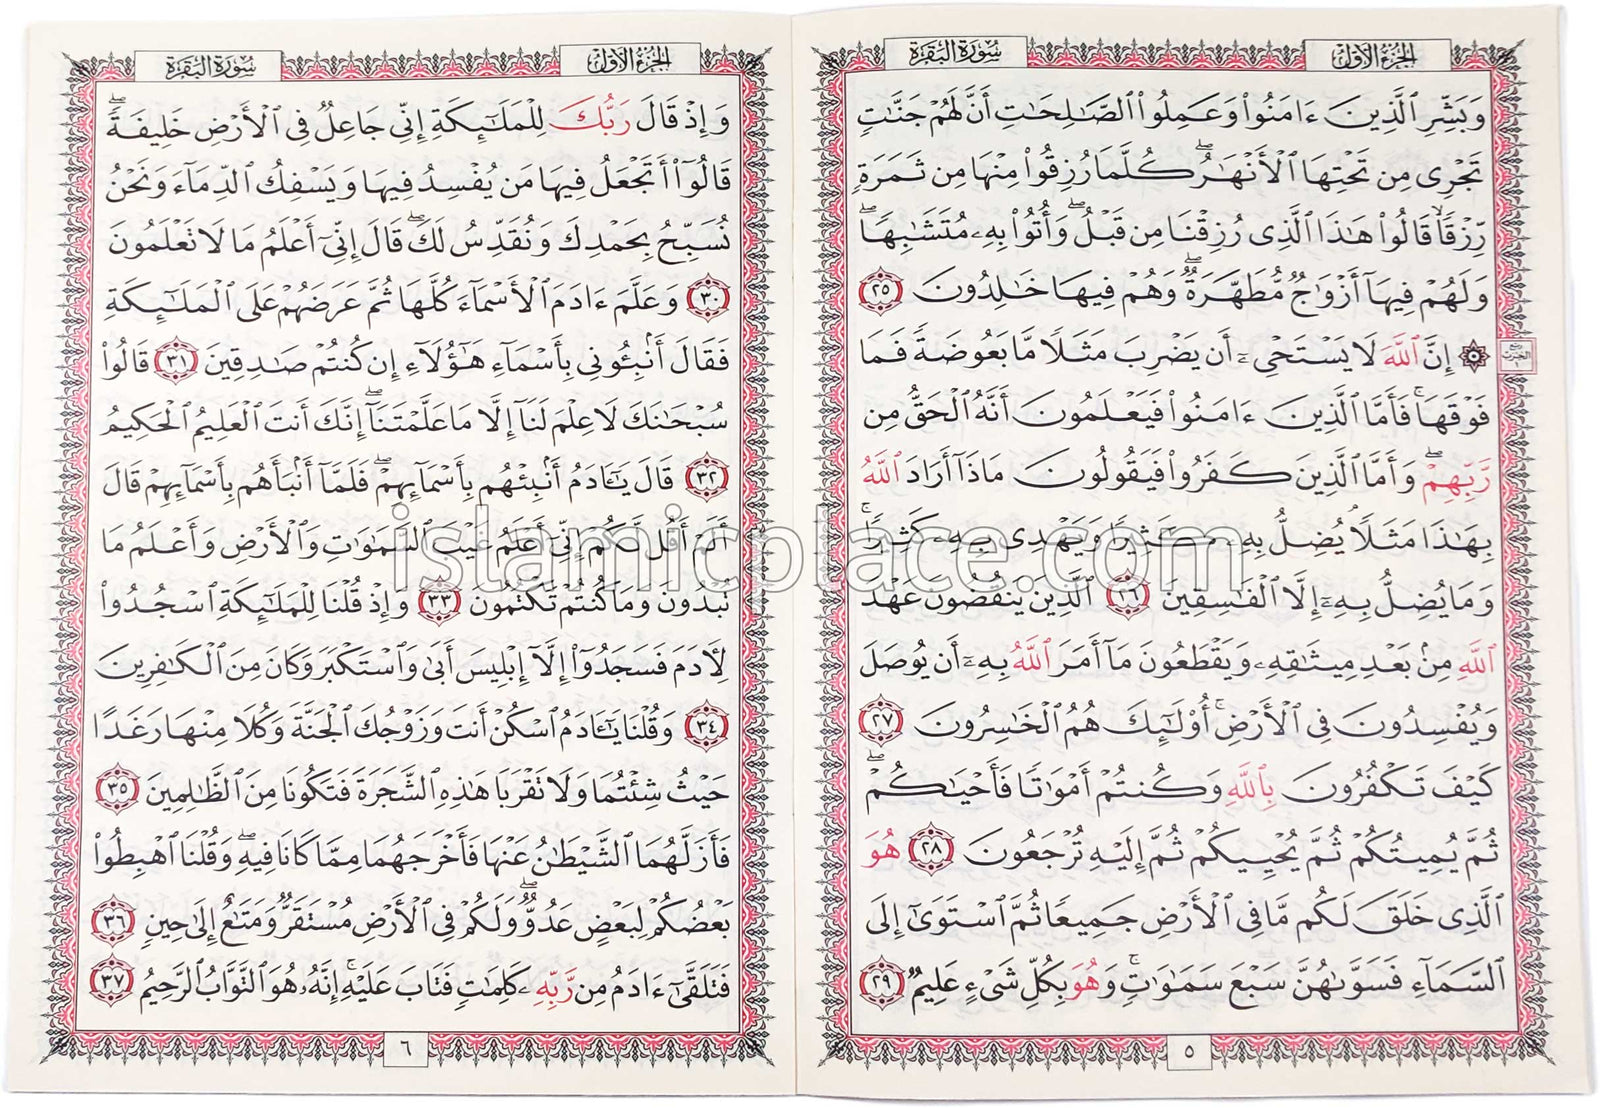 الجزء الأول
سورة البقرة
وَبَشِّرِ ٱلَّذِينَ ءَامَنُوا۟ وَعَمِلُوا۟ ٱلصَّـٰلِحَـٰتِ أَنَّ لَهُمْ جَنَّـٰتٍ
تَجْرِى مِن تَحْتِهَا ٱلْأَنْهَـٰرُ ۖ كُلَّمَا رُزِقُوا۟ مِنْهَا مِن ثَمَرَةٍ
رِّزْقًا ۙ قَالُوا۟ هَـٰذَا ٱلَّذِى رُزِقْنَا مِن قَبْلُ ۖ وَأُتُوا۟ بِهِۦ مُتَشَـٰبِهًا ۖ
وَلَهُمْ فِيهَآ أَزْوَٰجٌ مُّطَهَّرَةٌ ۖ وَهُمْ فِيهَا خَـٰلِدُونَ ٢٥
۞ إِنَّ ٱللَّهَ لَا يَسْتَحْىِۦٓ أَن يَضْرِبَ مَثَلًا مَّا بَعُوضَةً فَمَا
فَوْقَهَا ۚ فَأَمَّا ٱلَّذِينَ ءَامَنُوا۟ فَيَعْلَمُونَ أَنَّهُ ٱلْحَقُّ مِن
رَّبِّهِمْ ۖ وَأَمَّا ٱلَّذِينَ كَفَرُوا۟ فَيَقُولُونَ مَاذَآ أَرَادَ ٱللَّهُ
بِهَـٰذَا مَثَلًا ۘ يُضِلُّ بِهِۦ كَثِيرًا وَيَهْدِى بِهِۦ كَثِيرًا ۚ
وَمَا يُضِلُّ بِهِۦٓ إِلَّا ٱلْفَـٰسِقِينَ ٢٦ ٱلَّذِينَ يَنقُضُونَ عَهْدَ
ٱللَّهِ مِنۢ بَعْدِ مِيثَـٰقِهِۦ وَيَقْطَعُونَ مَآ أَمَرَ ٱللَّهُ بِهِۦٓ أَن يُوصَلَ
وَيُفْسِدُونَ فِى ٱلْأَرْضِ ۚ أُو۟لَـٰٓئِكَ هُمُ ٱلْخَـٰسِرُونَ ٢٧
كَيْفَ تَكْفُرُونَ بِٱللَّهِ وَكُنتُمْ أَمْوَٰتًا فَأَحْيَـٰكُمْ ۖ
ثُمَّ يُمِيتُكُمْ ثُمَّ يُحْيِيكُمْ ثُمَّ إِلَيْهِ تُرْجَعُونَ ٢٨ هُوَ
ٱلَّذِى خَلَقَ لَكُم مَّا فِى ٱلْأَرْضِ جَمِيعًا ثُمَّ ٱسْتَوَىٰٓ إِلَى
ٱلسَّمَآءِ فَسَوَّىٰهُنَّ سَبْعَ سَمَـٰوَٰتٍ ۚ وَهُوَ بِكُلِّ شَىْءٍ عَلِيمٌ ٢٩
ربع
الحزب
١
٥
الجزء الأول
سورة البقرة
وَإِذْ قَالَ رَبُّكَ لِلْمَلَـٰٓئِكَةِ إِنِّى جَاعِلٌ فِى ٱلْأَرْضِ خَلِيفَةً ۖ
قَالُوٓا۟ أَتَجْعَلُ فِيهَا مَن يُفْسِدُ فِيهَا وَيَسْفِكُ ٱلدِّمَآءَ وَنَحْنُ
نُسَبِّحُ بِحَمْدِكَ وَنُقَدِّسُ لَكَ ۖ قَالَ إِنِّىٓ أَعْلَمُ مَا لَا تَعْلَمُونَ
٣٠ وَعَلَّمَ ءَادَمَ ٱلْأَسْمَآءَ كُلَّهَا ثُمَّ عَرَضَهُمْ عَلَى ٱلْمَلَـٰٓئِكَةِ
فَقَالَ أَنۢبِـُٔونِى بِأَسْمَآءِ هَـٰٓؤُلَآءِ إِن كُنتُمْ صَـٰدِقِينَ ٣١ قَالُوا۟
سُبْحَـٰنَكَ لَا عِلْمَ لَنَآ إِلَّا مَا عَلَّمْتَنَآ ۖ إِنَّكَ أَنتَ ٱلْعَلِيمُ ٱلْحَكِيمُ
٣٢ قَالَ يَـٰٓـَٔادَمُ أَنۢبِئْهُم بِأَسْمَآئِهِمْ ۖ فَلَمَّآ أَنۢبَأَهُم بِأَسْمَآئِهِمْ قَالَ
أَلَمْ أَقُل لَّكُمْ إِنِّىٓ أَعْلَمُ غَيْبَ ٱلسَّمَـٰوَٰتِ وَٱلْأَرْضِ وَأَعْلَمُ مَا
تُبْدُونَ وَمَا كُنتُمْ تَكْتُمُونَ ٣٣ وَإِذْ قُلْنَا لِلْمَلَـٰٓئِكَةِ ٱسْجُدُوا۟
لِـَٔادَمَ فَسَجَدُوٓا۟ إِلَّآ إِبْلِيسَ أَبَىٰ وَٱسْتَكْبَرَ وَكَانَ مِنَ ٱلْكَـٰفِرِينَ
٣٤ وَقُلْنَا يَـٰٓـَٔادَمُ ٱسْكُنْ أَنتَ وَزَوْجُكَ ٱلْجَنَّةَ وَكُلَا مِنْهَا رَغَدًا
حَيْثُ شِئْتُمَا وَلَا تَقْرَبَا هَـٰذِهِ ٱلشَّجَرَةَ فَتَكُونَا مِنَ ٱلظَّـٰلِمِينَ ٣٥
فَأَزَلَّهُمَا ٱلشَّيْطَـٰنُ عَنْهَا فَأَخْرَجَهُمَا مِمَّا كَانَا فِيهِ ۖ وَقُلْنَا ٱهْبِطُوا۟
بَعْضُكُمْ لِبَعْضٍ عَدُوٌّ ۖ وَلَكُمْ فِى ٱلْأَرْضِ مُسْتَقَرٌّ وَمَتَـٰعٌ إِلَىٰ حِينٍ ٣٦
فَتَلَقَّىٰٓ ءَادَمُ مِن رَّبِّهِۦ كَلِمَـٰتٍ فَتَابَ عَلَيْهِ ۚ إِنَّهُۥ هُوَ ٱلتَّوَّابُ ٱلرَّحِيمُ ٣٧
٦
islamicplace.com